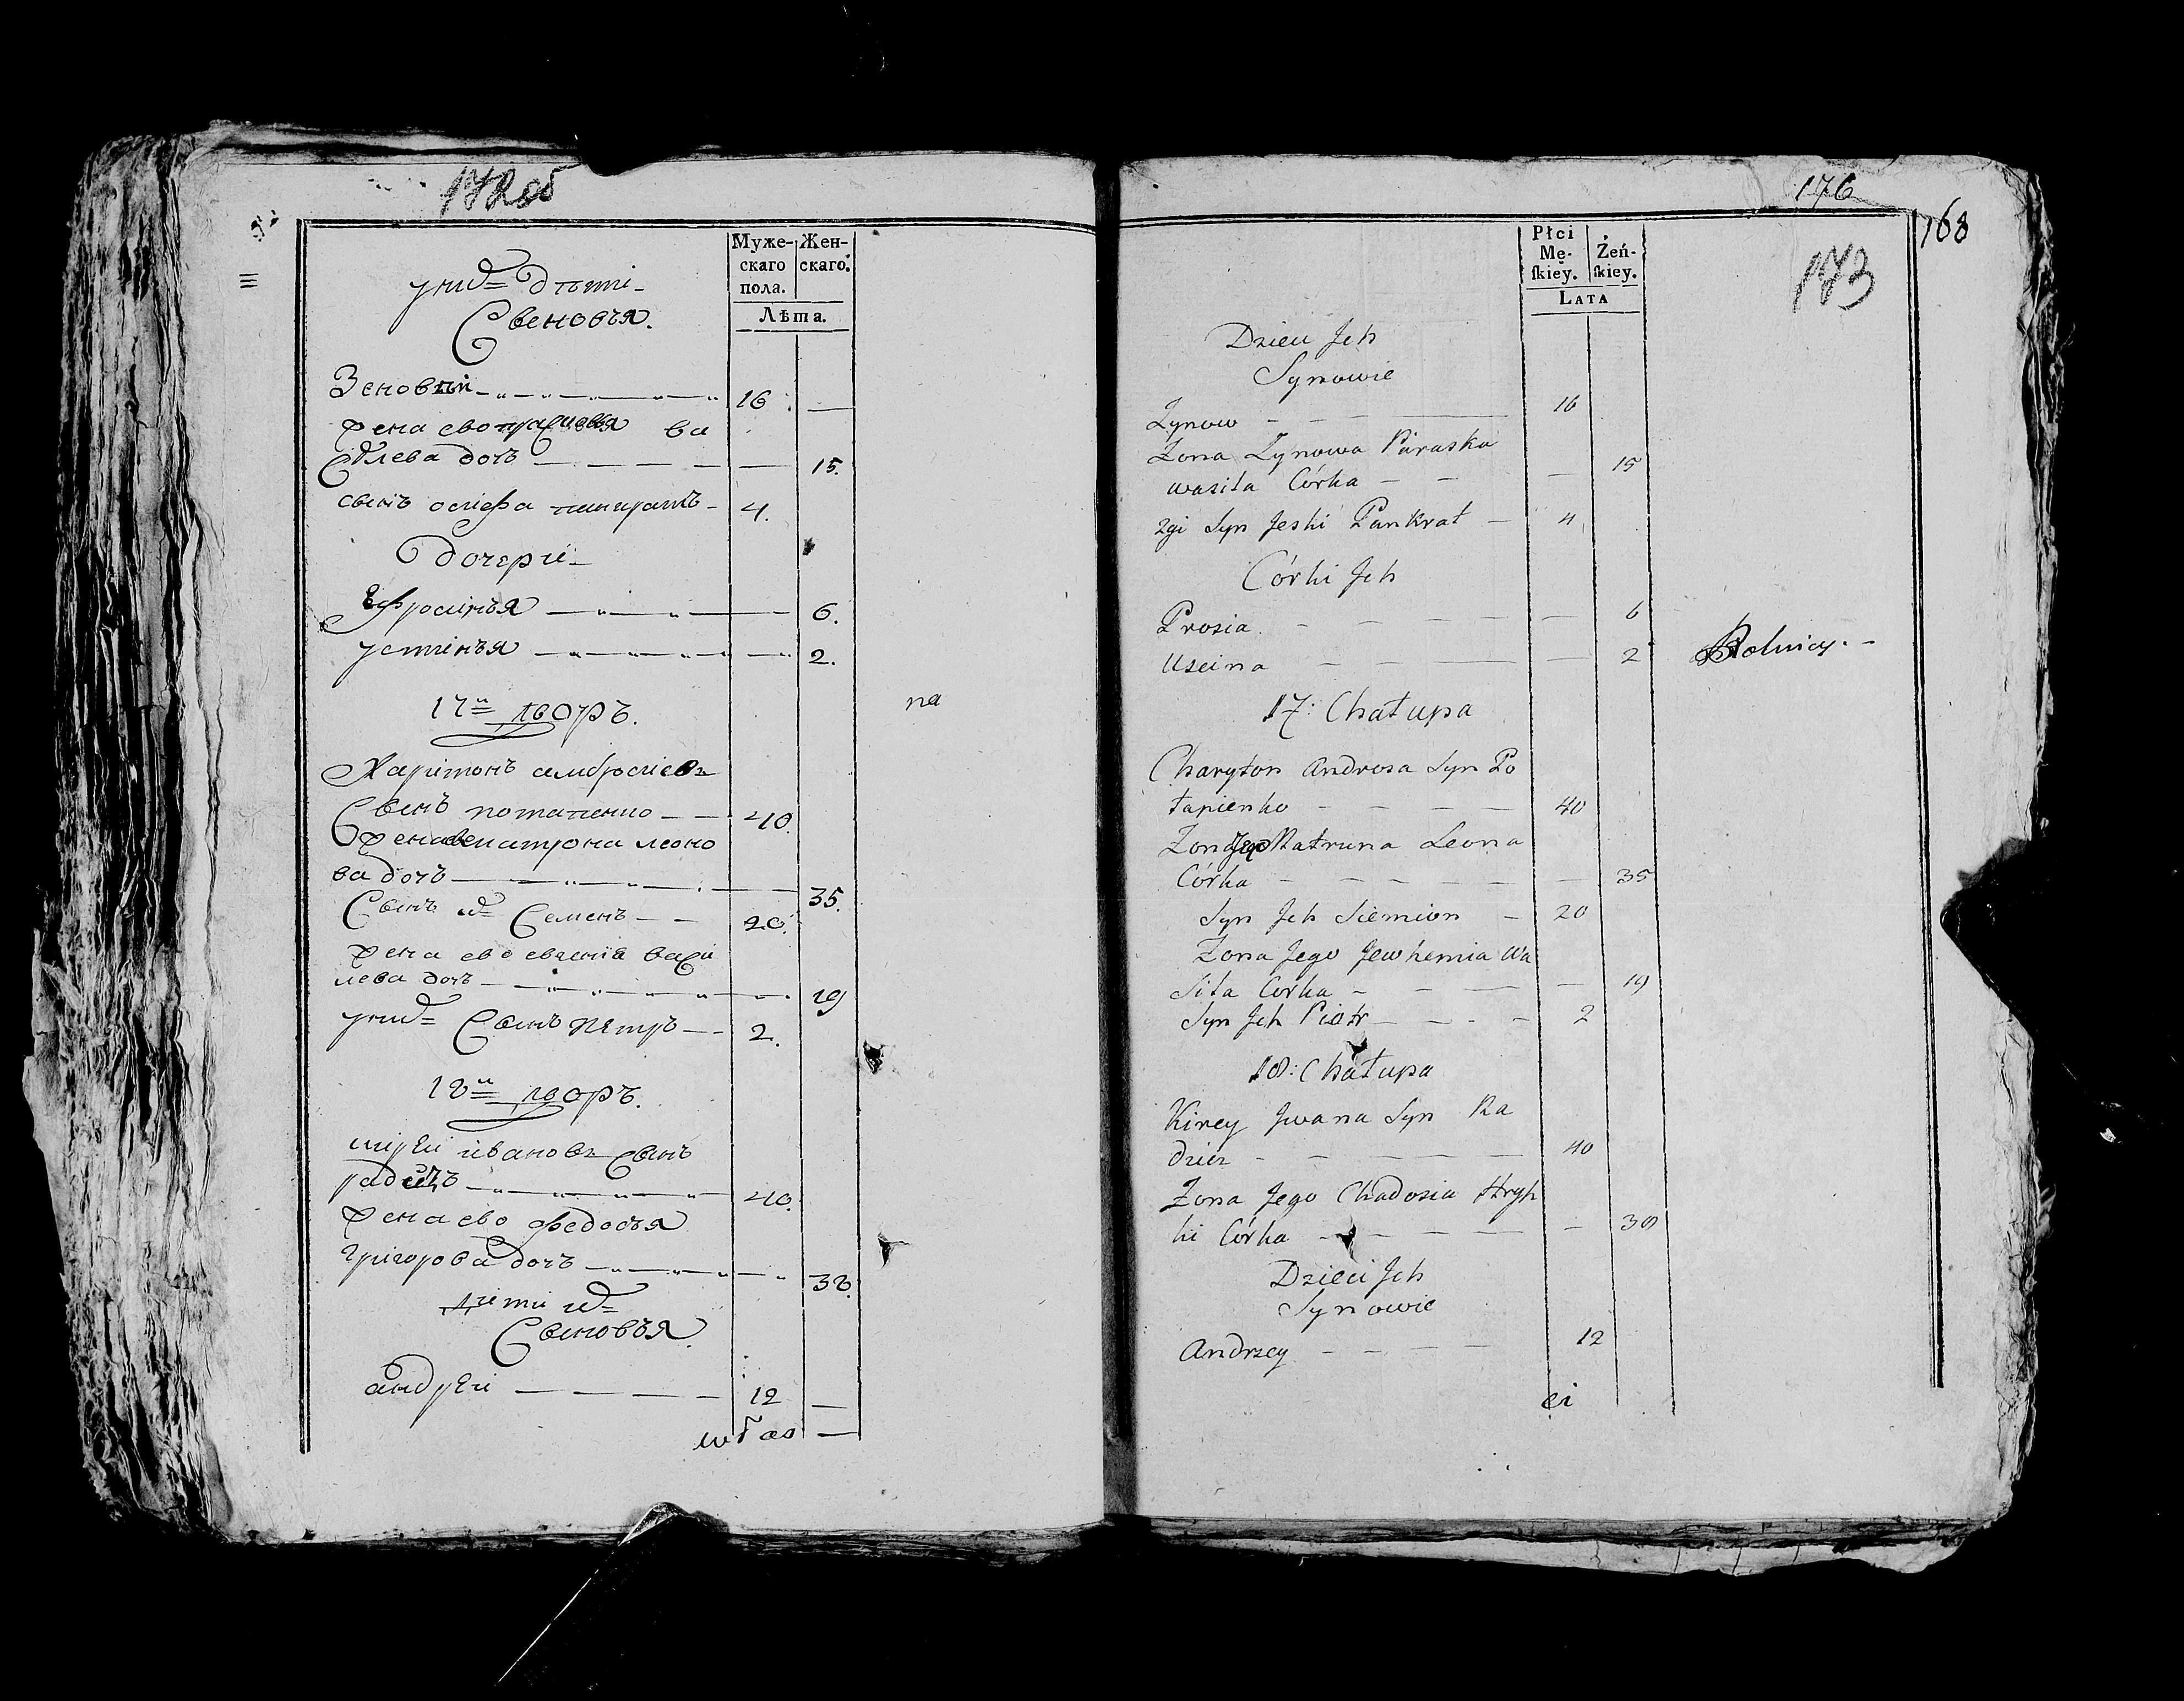 172 об
Муже-
скаго
пола.
Жен-
скаго.
Лѣта.
у них дѣти
Сыновья.
Зеновий 16
жена ево праскевья ва
Силева дочь 15.
сынъ осифа панкратъ 4.
дочери
Ефросинья 6.
устинья 2.
17й дворъ.
на
Харитонъ амбросиевъ
Сынъ потапенко 40.
жена ево матрона леоно
ва дочь 35.
Сынъ их Семенъ 20.
жена ево евгения васи
лева дочь 19
у них Сынъ петръ 2.
18й дворъ.
кирей ивановъ Сынъ
радецъ 40.
жена ево федосья
григорова дочь 38.
дети их
Сыновья
андрей 12
176
168
173
Płci
Mę-
ſkiey.
Żeń-
ſkiey.
LATA
Dzieci Jch
Synowie
Zynow 16
Zona Zynowa Paraska
wasila Córka 15
2gi Syn Jeski Pankrat 4
Córki Jch
Prosia 6
Uscina 2
Rolnicy.
17: Chałupa
Charyton Androsa Syn Po
tapienko 40
Zona Jego Matruna Leona
Córka 35
Syn Jch Siemion 20
Zona Jego Jewhemia Wa
sila Córka 19
Syn Jch Piotr 2
18: Chałupa
Kirey Jwana Syn Ra
dziec 40
Zona Jego Chadosia Hryh
ki Córka 38
Dzieci Jch
Synowie
Andrzey 12